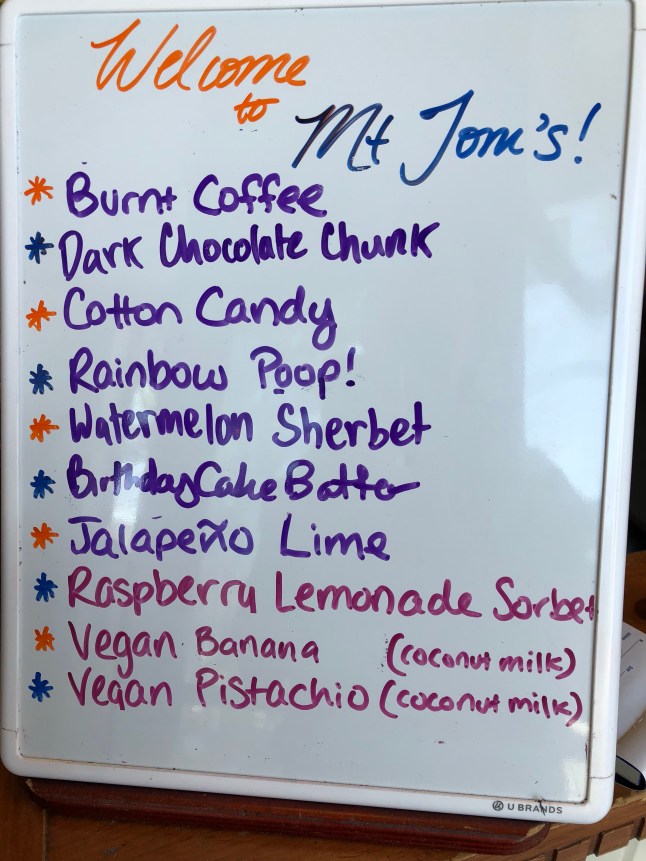 Welcome
to
Mt Tom's!
* Burnt Coffee
* Dark Chocolate Chunk
* Cotton Candy
* Rainbow Poop!
* Watermelon Sherbet
* Birthday Cake Batter
* Jalapeño Lime
* Raspberry Lemonade Sorbet
* Vegan Banana (coconut milk)
* Vegan Pistachio (coconut milk)
U BRANDS